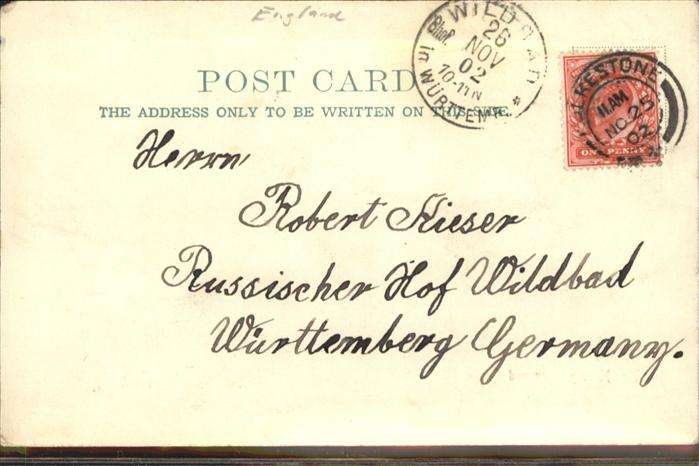 England
WILDBAD
Bhof.
26
NOV
02
10-11 N
in WÜRTTEMB.
FOLKESTONE
11 AM
NO 25
02
ONE PENNY
POST CARD
THE ADDRESS ONLY TO BE WRITTEN ON THIS SIDE.
Herrn
Robert Kieser
Russischer Hof Wildbad
Württemberg Germany.